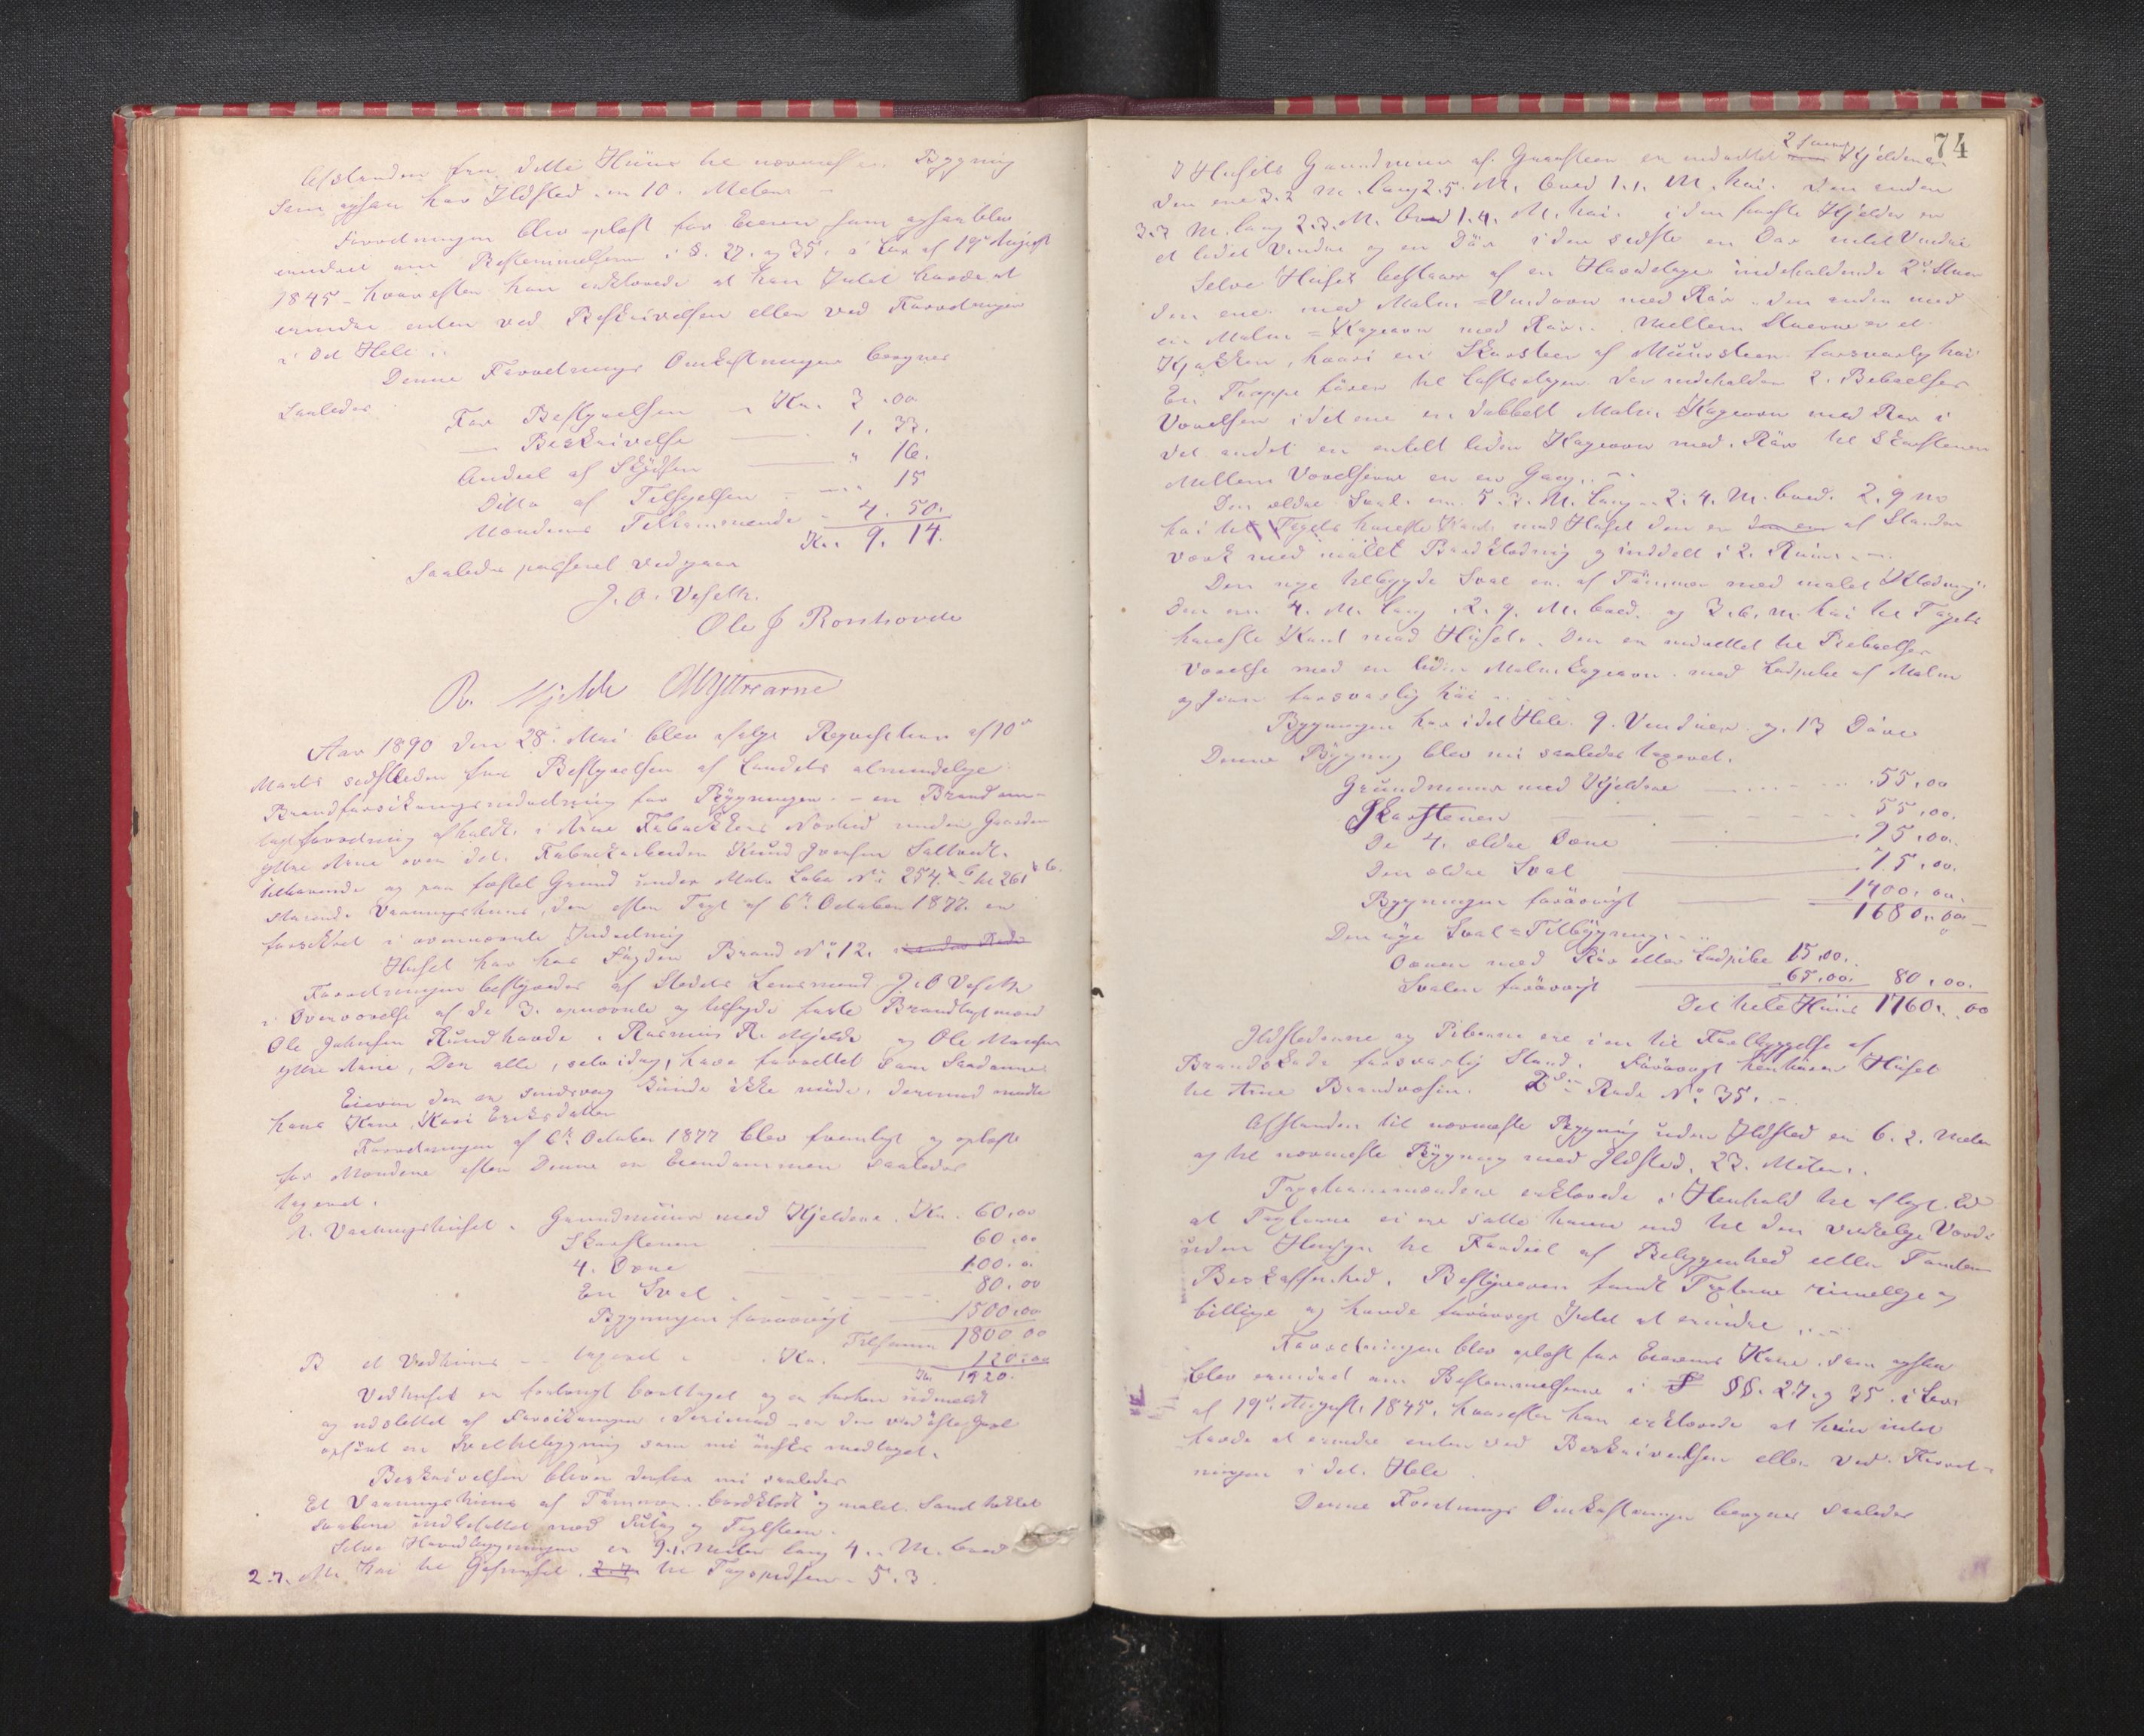 Afstanden fra dette Huus til nærmeste Bygning
som ogsaa har Ildsted er 10. Meter –
Forretningen blev oplæst for Eieren som ogsaa blev
erindret om Bestemmelserne i §. 27. og 35. i Lov af 19de August
1845 – hvorefter han erklærede at han Intet havde at
erindre enten ved Beskrivelsen eller ved Forretningen
i det Hele.
Denne Forretnings Omkostninger beregnes
saaledes
For Bestyrelsen „ Kr. 3.00
— Beskrivelse — 1. 33.
Andeel af Skydsen — „ 16.
Ditto af Tilsigelsen — „ 15
Mændenes Tilkommende – 4. 50.
Kr. 9. 14.
Saaledes passeret vedgaar
J. O. Veseth.
Ole J Romhovde
R. Mjelde OMYttrearne
Aar 1890 den 28. Mai blev ifølge Reqvisition af 10de
Marts sidstleden fra Bestyrelsen af Landets almindelige
Brandforsikringsindretning for Bygninger – en Brandom-
taxtforretning afholdt i Arne Fabrikkers Nærhed under Gaarden
yttre Arne over det Fabrikarbeider Knud Iversen Saltvedt
tilhørende og paa fæstet Grund under Matr Løbe No 254. b til 261 b.
staaende Vaaningshuus, der efter Taxt af 6te October 1877 er
forsikret i ovennævnte Indretning
Huset har hos Fogden Brand No 12.
Forretningen bestyredes af Stedets Lensmand J. O Veseth
i Overværelse af de 3. opnævnte og tilsigede faste Brandtaxtmænd
Ole Johnsen Rundhovde, Rasmus R. Mjelde og Ole Monsen
yttre Arne, Der alle, selv idag, have forrettet som Saadanne
Eieren der er sindsvag kunde ikke møde, derimod mødte
hans Kone, Kari Eriksdatter
Forretningen af 6te October 1877 blev fremlagt og oplæst
for Mændene efter Denne er Eiendommen saaledes
taxeret.
A. Vaaningshuset. Grundmuur med Kjeldere. Kr. 60,00
Skorstenen — 60,00
4. Ovne — 100.0
En Sval. — 80.00
Bygningen forøvrigt — 1500,00
Tilsammen 1800,00
B et Vedhuus – taxeret – Kr. 120,00
Kr. 1920.
Vedhuset er forlængst borttaget og er forhen udmeldt
og udslettet af Forsikringen, derimod – er der ved østre Gavl
opført en Svaltilbygning som nu ønskes medtaget.
Beskrivelsen bliver derfor nu saaledes
Et Vaaningshuus af Tømmer, bordklædt og malet samt tækket
med Sutag og Taglsteen.
Selve Hovedbygningen er 9.1. Meter lang 4.. M. bred
2.7. M. høi til Gesimset, 2.7. til Tagspidsen – 5. 3.
74
I Husets Grundmuur af Graasteen er indrettet 2 smaa Kjeldere
den ene 3.2 M. lang 2.5. M. bred 1.1. M. høi. den anden
3.3 M. lang 2.3. M. bred 1.4. M. høi. i den første Kjelder er
et lidet Vindue og en Dør i den sidste en Dør intet Vindue
Selve Huset bestaaer af en Hovedetage indeholdende 2de Stuer
den ene med Malm-Vindovn med Rør – den anden med
en Malm-Kogeovn med Rør. Mellem Stuerne er et
Kjøkken, hvori en Skorsteen af Muursteen forsvarlig høi
En Trappe fører til Loftsetagen der indeholder 2. Beboelses
Værelser i det ene en dobbelt Malm-Kogeovn med Rør i
det andet en enkelt liden Kogeovn med Rør til Skorstenen
Mellem Værelserne er en Gang.
Den ældre Sval er 5. 3. M. lang – 2. 4. M. bred. 2. 9 M
høi til Tagets høieste Kant mod Huset den er den er af Stander
værk med malet Bordklædning og inddelt i 2. Rum.
Den nye tilbyggde Sval er af Tømmer med malet Klædning.
den er 4. M. lang, 2. 9. M. bred. og 3. 6. M. høi til Tagets
høieste Kant mod Huset. Den er indrettet til Beboelses
Værelse med en liden Malm Kogeovn. med Ladpibe af Malm
og Jern forsvarlig høi
Bygningen har i det Hele 9. Vinduer og 13 Døre
Denne Bygning blev nu saaledes taxeret.
Grundmuur med Kjeldere — 55,00
Skorstenen — 55,00.
De 4. ældre Ovne — 95.00.
Den ældre Sval — 75,00.
Bygningen forøvrigt — 1400.00.
1680,00
Den nye Sval-Tilbygning
Ovnen med Rør eller Ladpibe 15,00.
Svalen forøvrigt — 65,00. 80,00.
Det hele Huus 1760. 00
Ildstederne og Piberne ere i en til Forebyggelse af
Brandskade forsvarlig Stand. Forøvrigt henhører Huset
til Arne Brandvæsen. 2den Rode No 35.
Afstanden til nærmeste Bygning uden Ildsted er 6. 2. Meter
og til nærmeste Bygning med Ildsted, 23. Meter.
Taxtmændene erklærede i Henhold til aflagt Ed
at Taxterne ei ere satte høiere end til den virkelige Værdi
uden Hensyn til Fordeel af Beliggenhed eller Tomtens
Beskaffenhed. Bestyreren fandt Taxterne rimelige og
billige og havde forøvrigt Intet at erindre
Forretningen blev oplæst for Eierens Kone, som ogsaa
blev erindret om Bestemmelserne i §§. 27. og 35. i Lov
af 19de August 1845, hvorefter hun erklærede at hun intet
havde at erindre enten ved Beskrivelsen eller ved Forret-
ningen i det Hele
Denne Forretnings Omkostninger beregnes saaledes